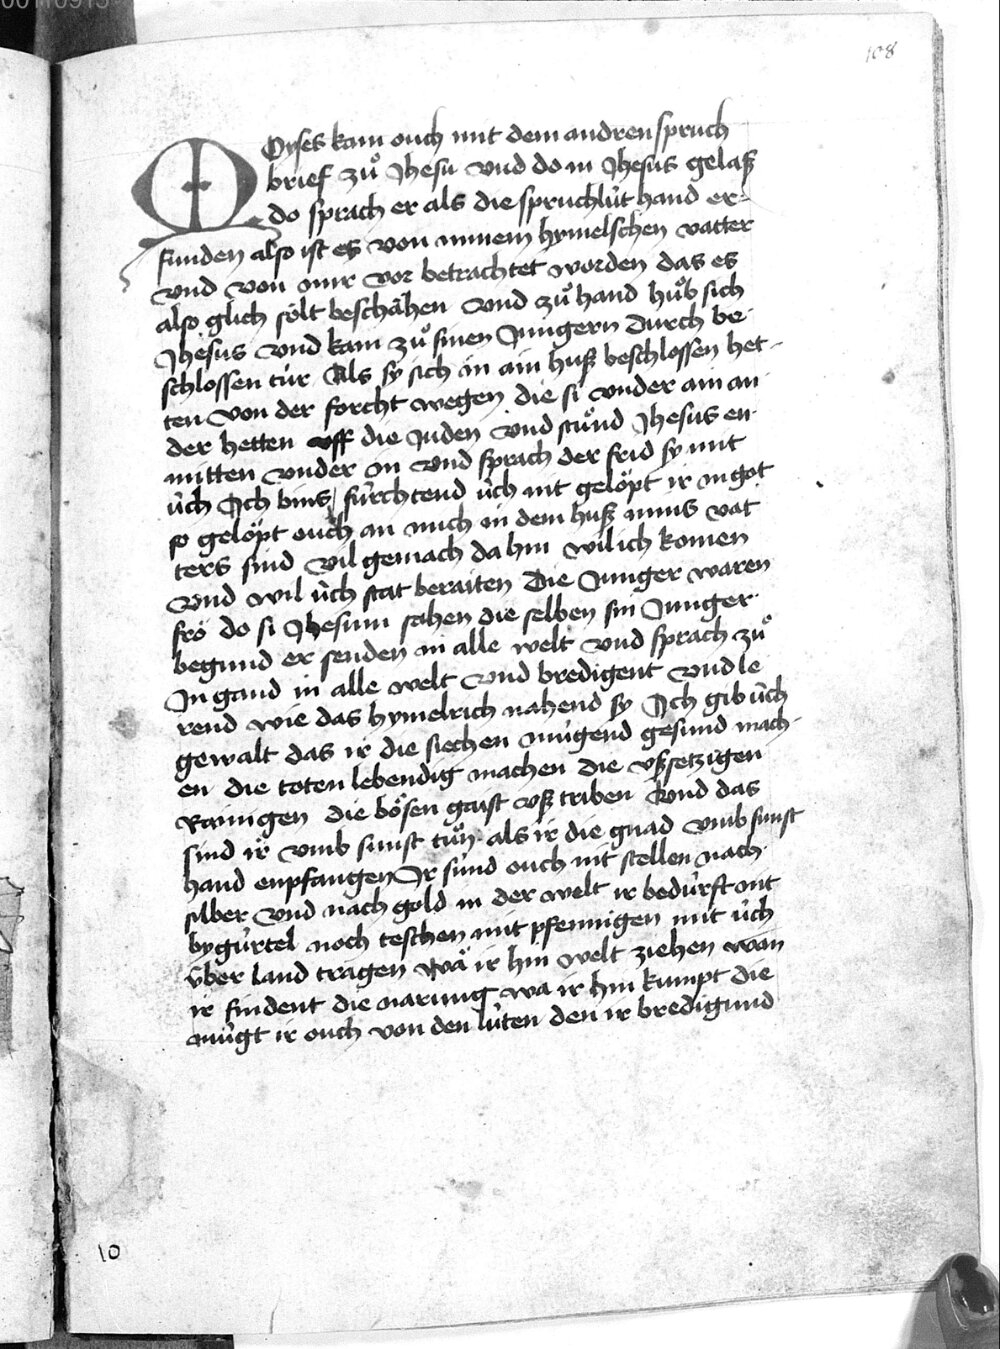 00110913
108
MOyses kam ouch mit dem andren spruch
brief zů Jhesu vnd do in Jhesus gelaß
do sprach er als die spruchlüt hand er-
funden also ist es von minem hymelschen vatter
vnd von mir vor betrachtet worden das es
also glich sölt beschähen vnd zů hand hůb sich
Jhesus vnd kam zů sinen Jungern durch be
schlossen tür Als sy sich in ain huß beschlossen het-
ten von der forcht wegen die si vnder ain an
der hetten vff die Juden vnd stůnd Jhesus en
mitten vnder in vnd sprach der frid sy mit
üch Ich bins fürchtend üch nit gelöpt ir in got
so gelöpt ouch an mich in dem huß mins vat
ters sind vil gemach da hin wil ich komen
vnd wil üch stat beraiten Die Junger waren
fro do si Jhesum sahen die selben sin Junger
begund er senden in alle welt vnd sprach zů
In gand in alle welt vnd bredigent vnd le
rend wie das hymelrich nahend sy Ich gib üch
gewalt das ir die siechen mügend gesund mach-
en die toten lebendig machen die vßsetzigen
Rainigen die bösen gaist vß triben Vnd das
sind ir vmb sunst tůn als ir die gnad vmb sunst
hand enpfangen Ir sünd ouch nit stellen nach
silber vnd nach gold in der welt ir bedürft nit
bygürtel noch teschen mit pfennigen mit üch
über land tragen Wa ir hin welt ziehen wan
ir findent die narung wa ir hin kumpt die
mügt ir ouch von den lüten den ir bredigund
10